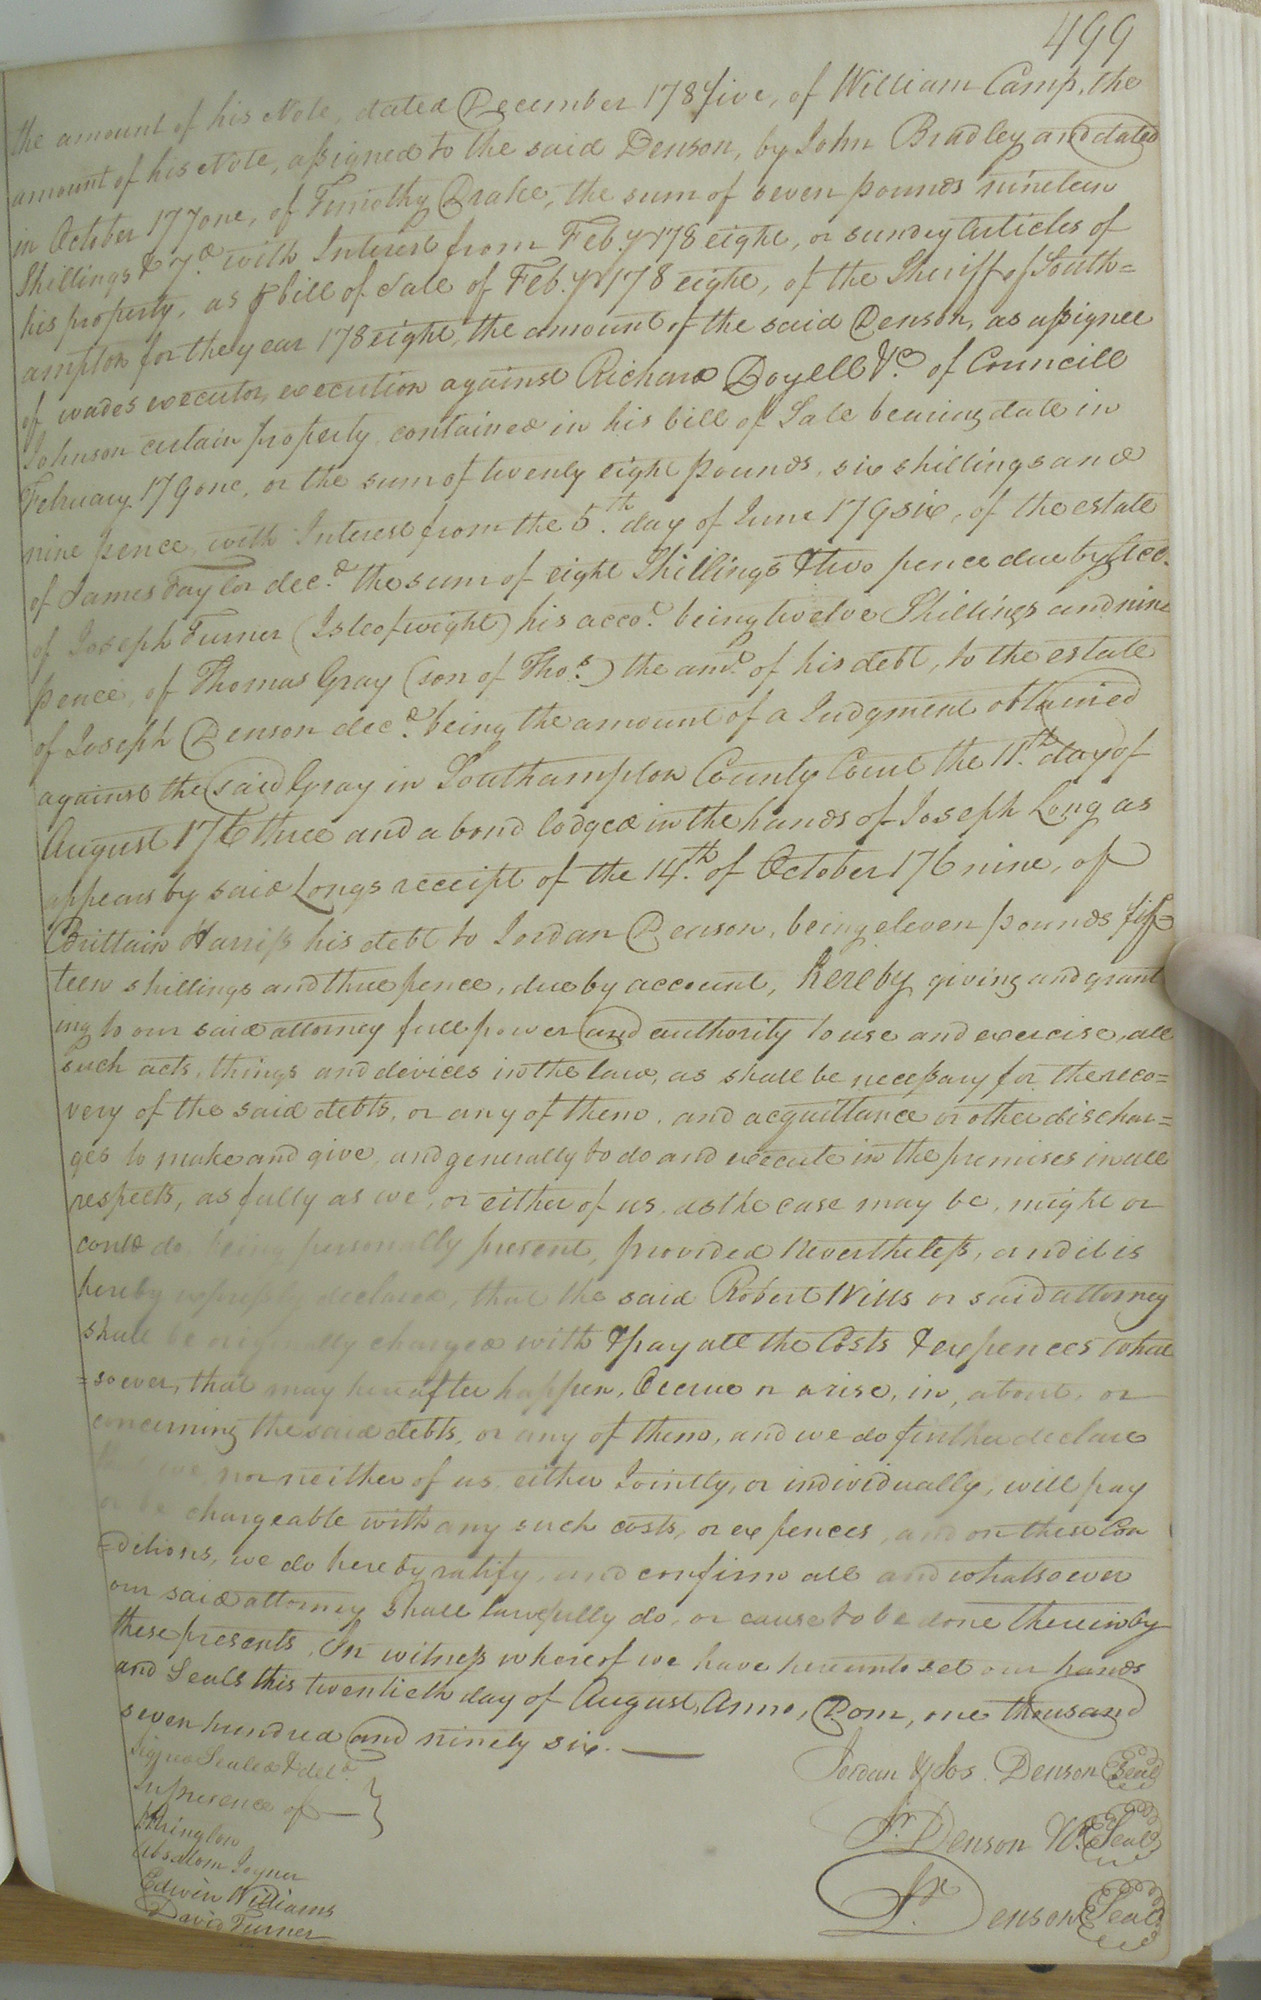 499
the amount of his Note, dated December 178five, of William Camp, the
amount of his Note, assigned to the said Denson, by John Bradley and dated
in October 177one, of Timothy Drake, the sum of seven pounds nineteen
Shillings & 7d. with Interest from Feby 178eight, or sundry Articles of
his property, as p bill of Sale of Feb.y 178eight, of the Sheriff of South=
ampton for the year 178eight, the amount of the said Denson, as assignee
of wades executor, execution against Richard Doyell &c. of Councill
Johnson certain property contained in his bill of Sale bearing date in
February 179one, or the sum of twenty eight pounds, six shillings and
nine pence, with Interest from the 5th. day of June 179six, of the estate
of James Taylor dec.d the sum of eight Shillings & two pence due by
of Joseph Turner (Isle of wight) his acco.t being twelve Shillings and nine
pence, of Thomas Gray (son of Tho.s) the am.t of his debt, to the estate
of Joseph Denson dec.d being the amount of a Judgment obtained
against the said Gray in Southampton County Court the 11th. day of
August 176three and a bond lodged in the hands of Joseph Long as
appears by said Longs receipt of the 14.th of October 176nine, of
Brittain Harriss his debt to Jordan Denson, being eleven pounds fif
teen shillings and three pence, due by account, hereby giving and grant
ing to our said attorney full power and authority to use and exercise, all
such acts, things and devices in the law, as shall be necessary for the reco=
very of the said debts, or any of them, and acquittance or other dischar=
ges to make and give, and generally to do and execute in the premises in all
respects, as fully as we, or either of us, as the case may be, might or
could do, being personally present, provided Nevertheless, and it is
hereby expressly declared, that the said Robert Wills or said attorney
shall be originally charged with & pay all the Costs & expences what
=soever, that may hereafter happen, Occrue or arise, in, about, or
concerning the said debts, or any of them, and we do further declare
that we, nor neither of us, either Jointly, or individually, will pay
or be chargeable with any such costs, or expences, and on these Con
=ditions, we do hereby ratify, and confirm all and whatsoever
our said attorney Shall lawfully do, or cause to be done therein by
these presents. In witness whereof we have hereunto set our hands
and Seals this twentieth day of August, Anno, Dom, one thousand
seven hundred and ninety six.
Signed Sealed & del.d
In presence of
Absalom Joyner
Edwin Williams
David Turner
Jordan & Jos. Denson Seal
Jr. Denson Seal
Jr. Denson Seal